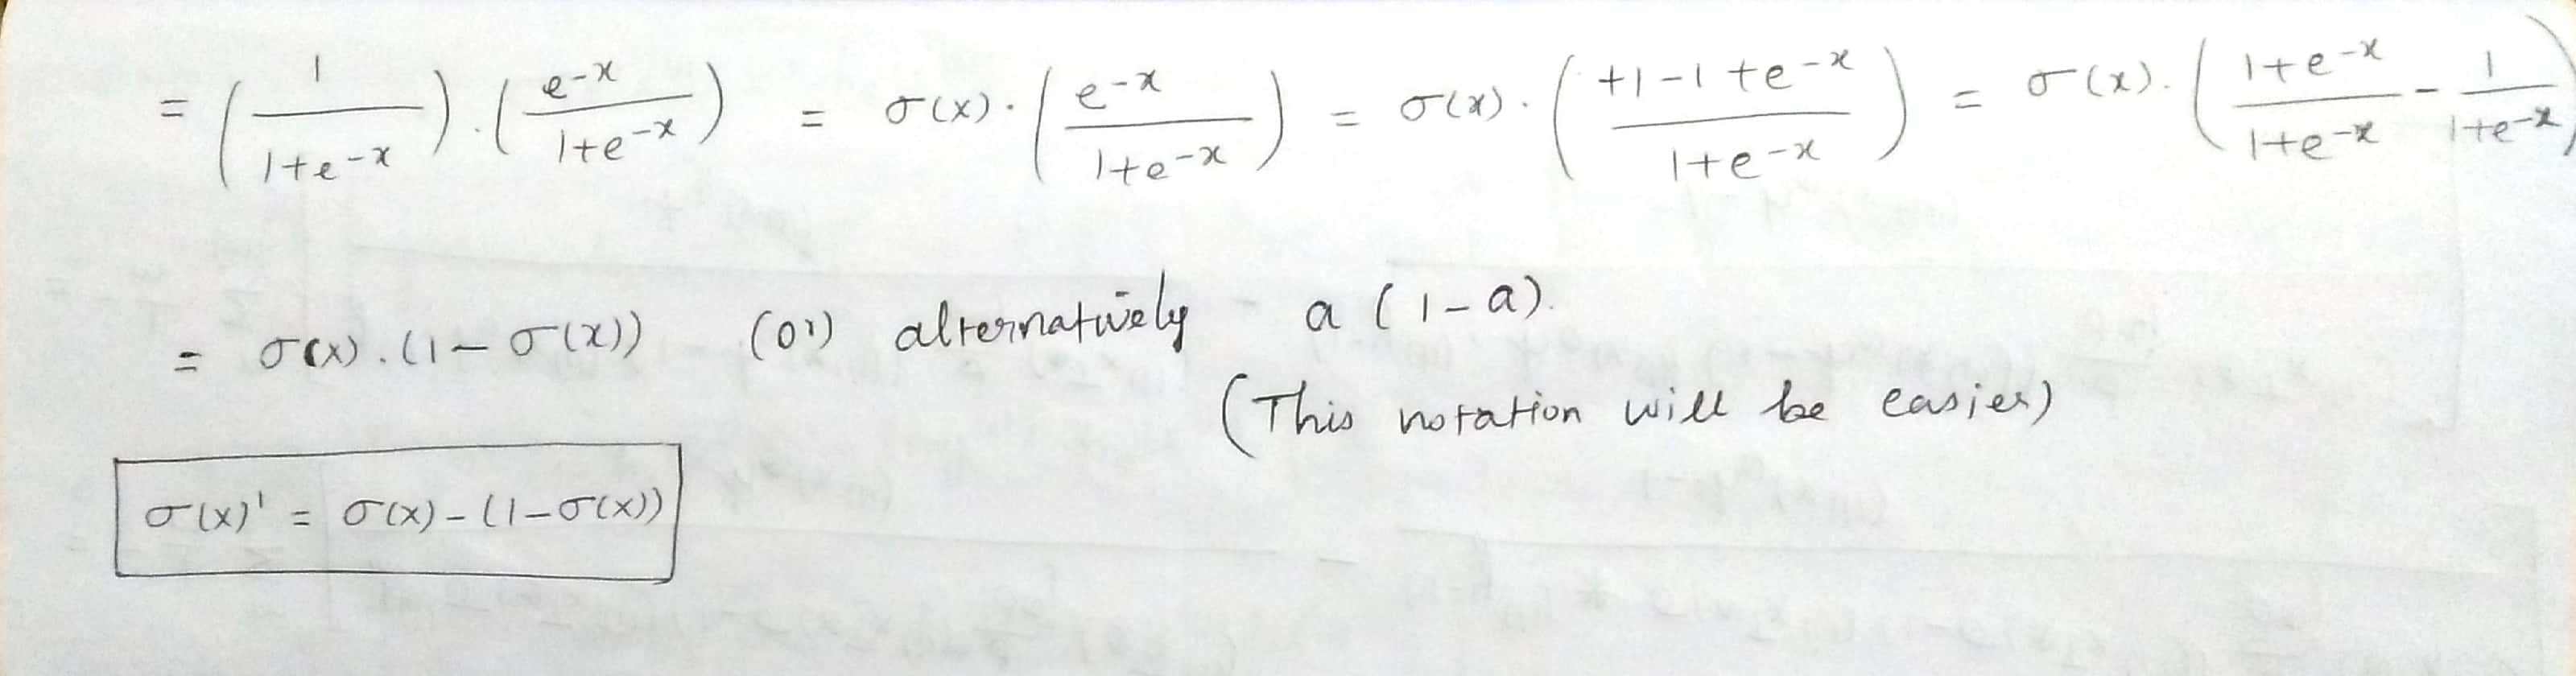 = (1/(1+e^-x)) . (e^-x/(1+e^-x)) = σ(x) . (e^-x/(1+e^-x)) = σ(x) . ((+1-1+e^-x)/(1+e^-x)) = σ(x) . ((1+e^-x)/(1+e^-x) - 1/(1+e^-x))
= σ(x) . (1-σ(x)) (or) alternatively a(1-a).
(This notation will be easier)
σ(x)' = σ(x) - (1-σ(x))